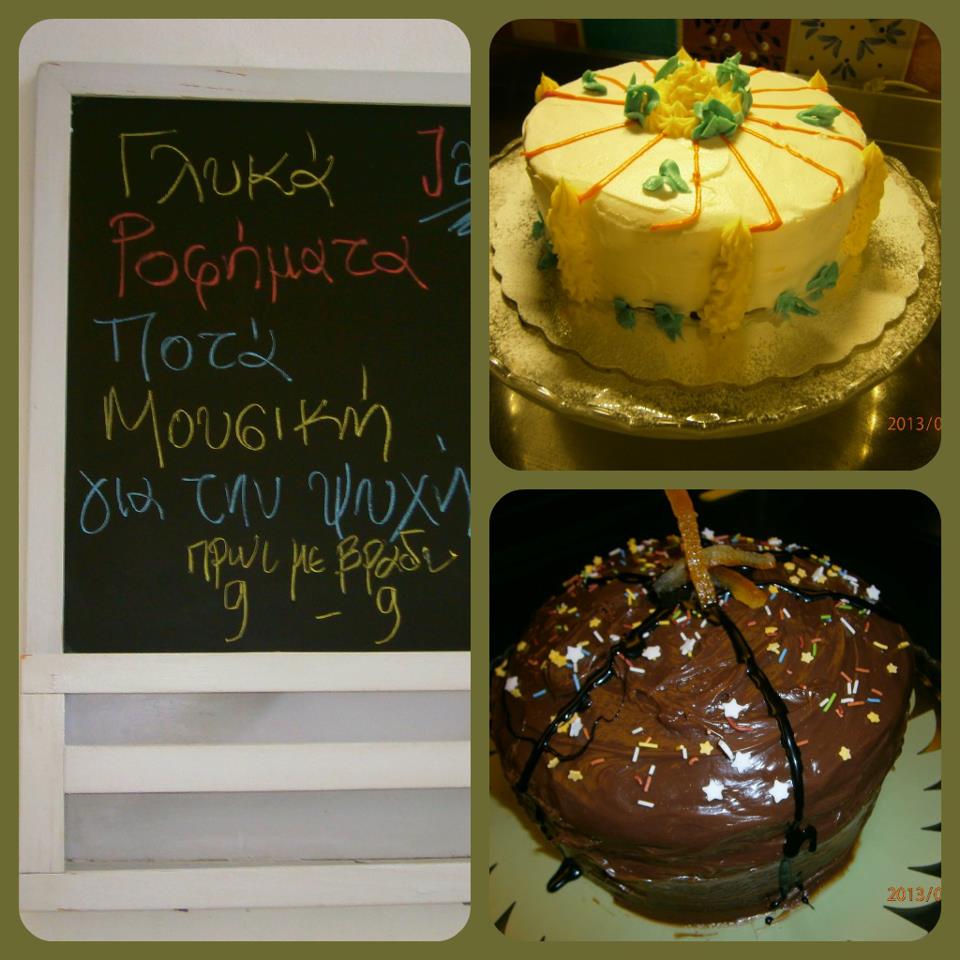 Γλυκά
Ροφήματα
Ποτά
Μουσική
για την ψυχή
πρωί με βράδυ
9 - 9
2013/0
2013/0